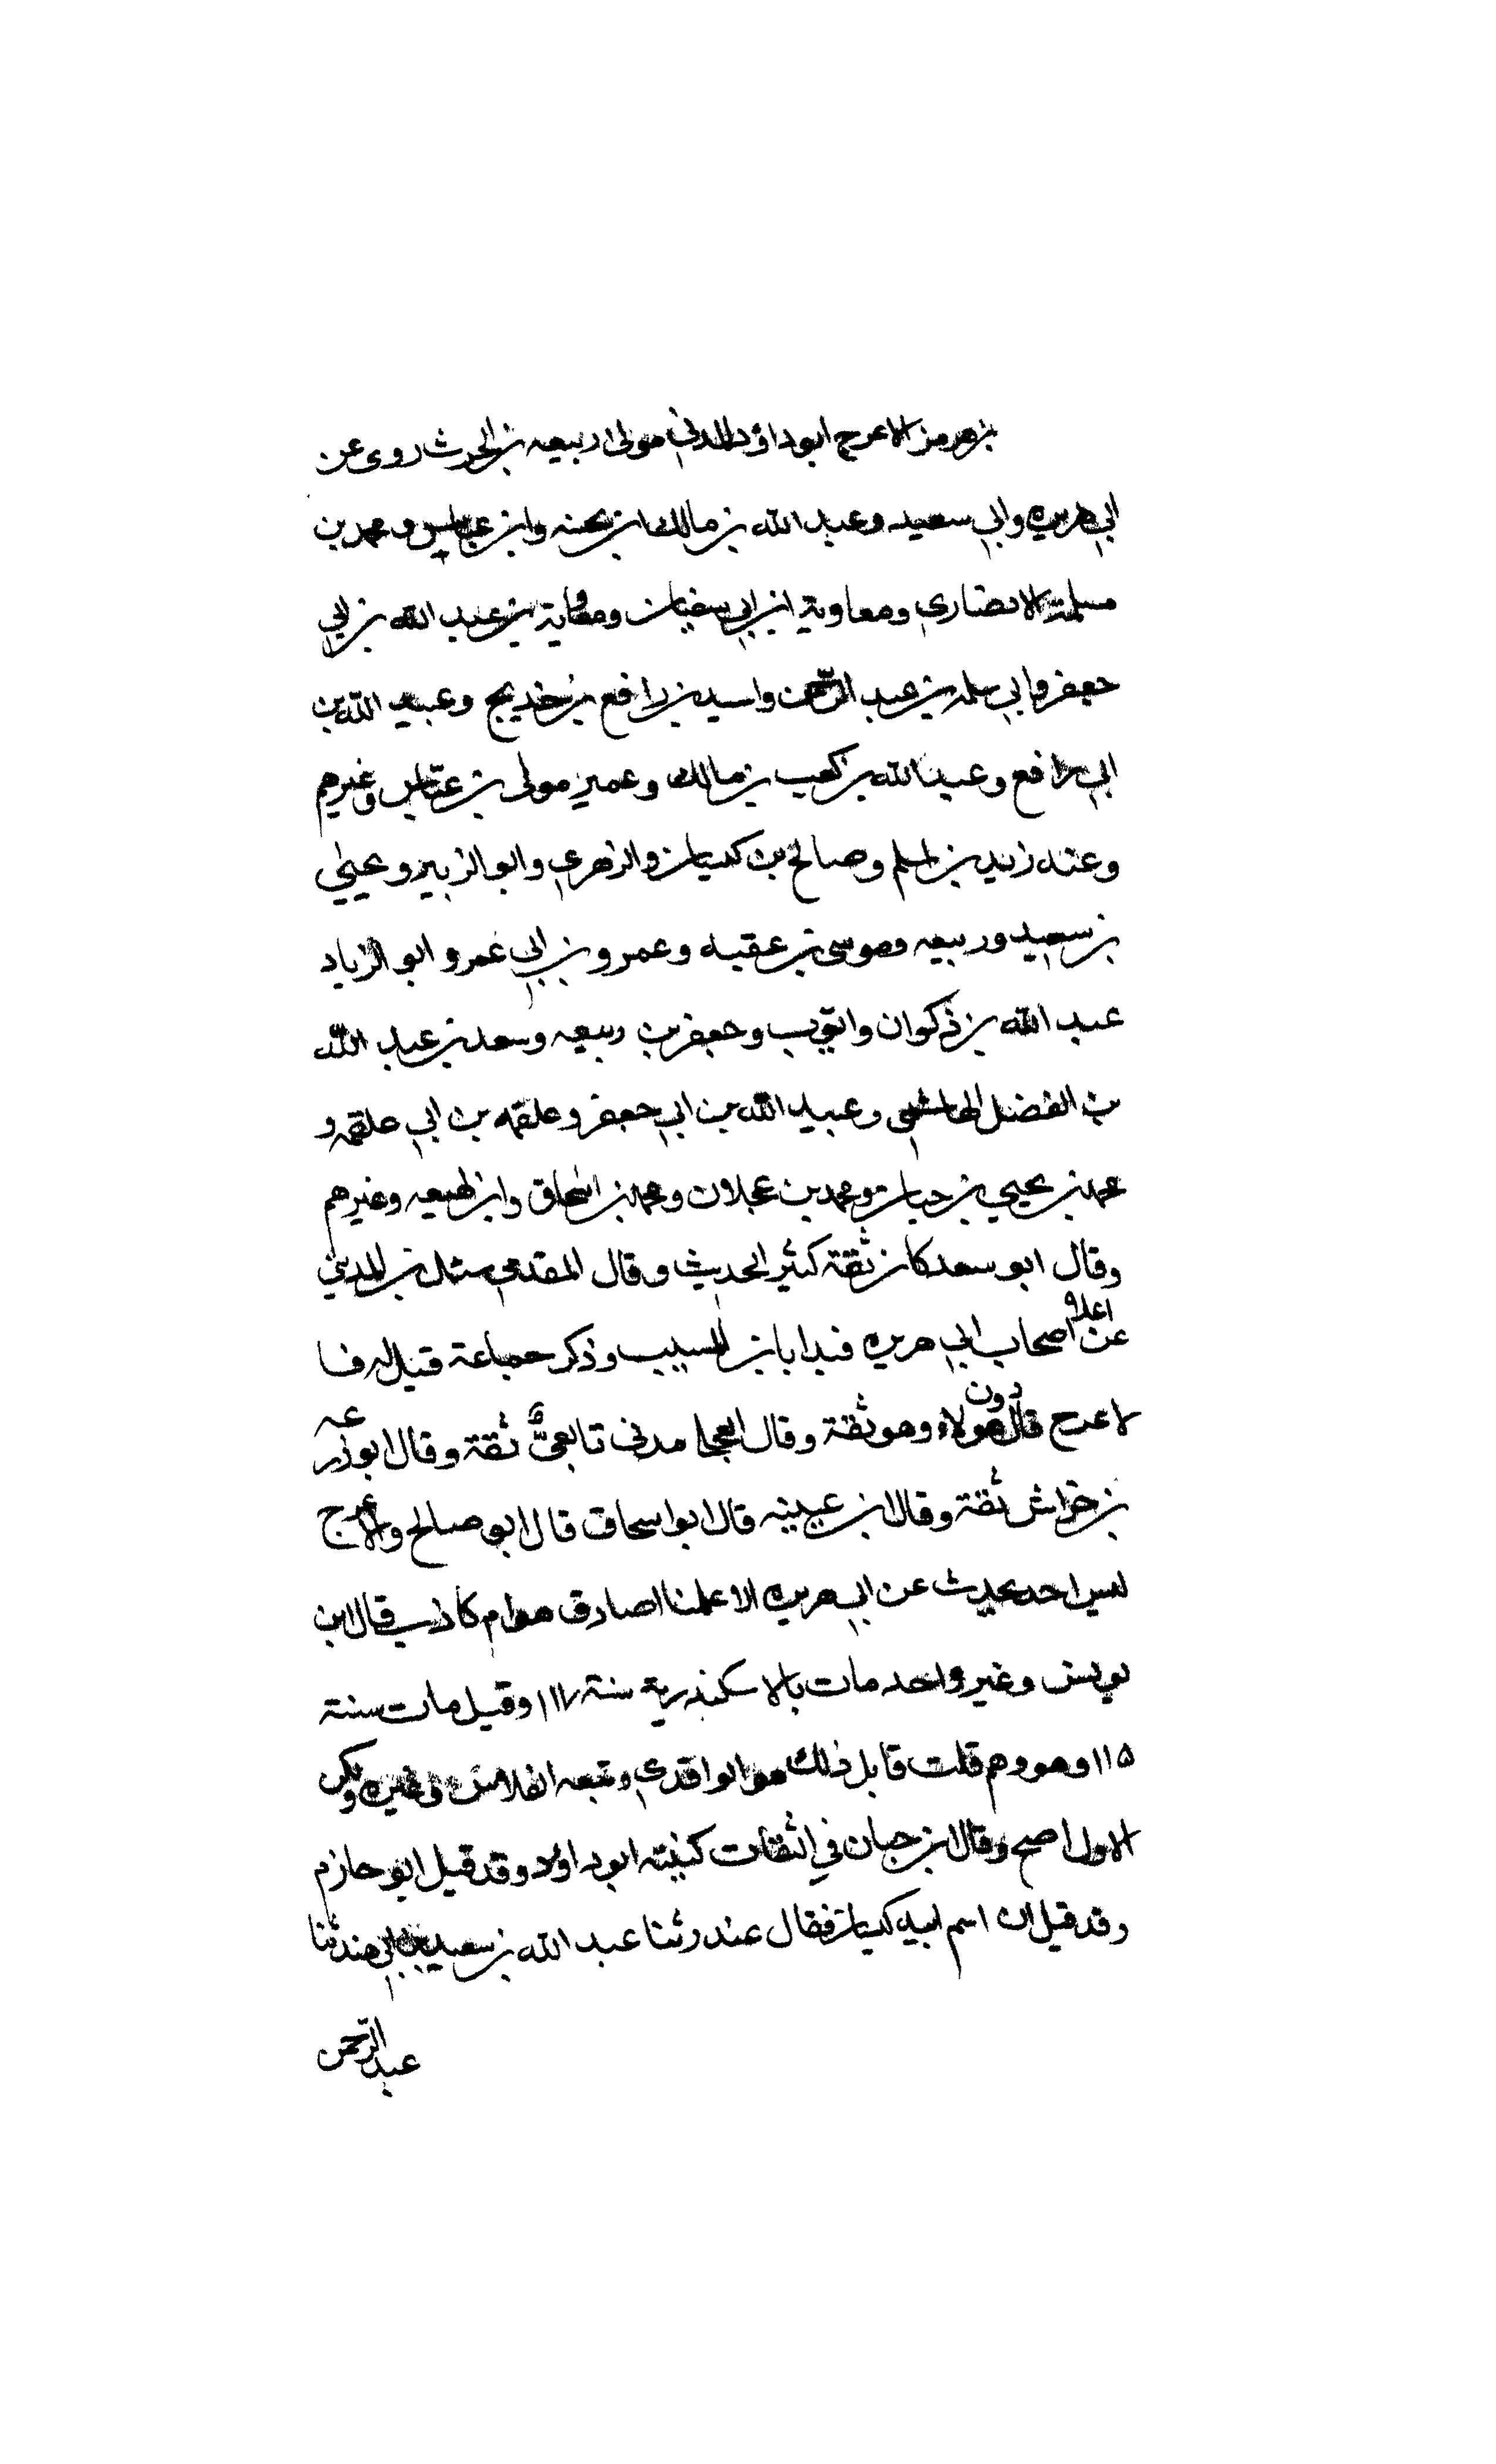 بن هرمز الاعرج ابو داؤد المدني مولى ربيعه بن الحرث روى عن
ابي هريره وابي سعيد وعبد الله بن مالك ابن بحينه وابن عباس ومحمد بن
مسلمة الانصاري ومعاوية ابن ابي سفيان ومعاوية بن عبد الله بن
جعفر وابي سلمه بن عبد الرحمن واسيد بن رافع بن خديج وعبيد الله بن
ابي رافع وعبد الله بن كعب بن مالك وعمير مولى بن عباس وغيرهم
وعنه زيد بن اسلم وصالح بن كيسان والزهري وابو الزبير ويحيى
بن سعيد وربيعه وموسى بن عقبه وعمرو بن ابي عمرو ابو الزناد
عبد الله بن ذكوان وايوب وجعفر بن ربيعه وسعد بن عبد الله
بن الفضل الهاشمي وعبيد الله بن ابي جعفر وعلقمه بن ابي علقمه و
محمد بن يحيى بن حبان ومحمد بن عجلان ومحمد بن اسحاق وابن لهيعه وغيرهم
وقال ابو سعد كان ثقة كثير الحديث وقال المقدمي سئل بن المديني
عن اعلاء اصحاب ابي هريره فبدا بابن المسيب وذكر جماعة قيل له فا
لاعرج قال دون هولاء وهو ثقة وقال العجلي مدني تابعيٌّ ثقة وقال ابو زرعه
بن خراش ثقة وقال ابن عيينه قال ابو اسحاق قال ابو صالح والاعرج
ليس احد يحدث عن ابي هريره الا علمنا اصادق هو ام كاذب قال ابن
يونس وغير واحد مات بالاسكندرية سنة ١١٧ وقيل مات سنة
١١٥ وهو وهم قلت قايل ذلك هو الواقدي وتبعه الفلاس وغيره ولكن
الاول اصح وقال ابن حبان في الثقات كنيته ابو داؤد وقد قيل ابو حازم
وقد قيل ان اسم ابيه كيسان فقال عند رثنا عبد الله بن سعيد بن ابي هند ثنا
عبد الرحمن